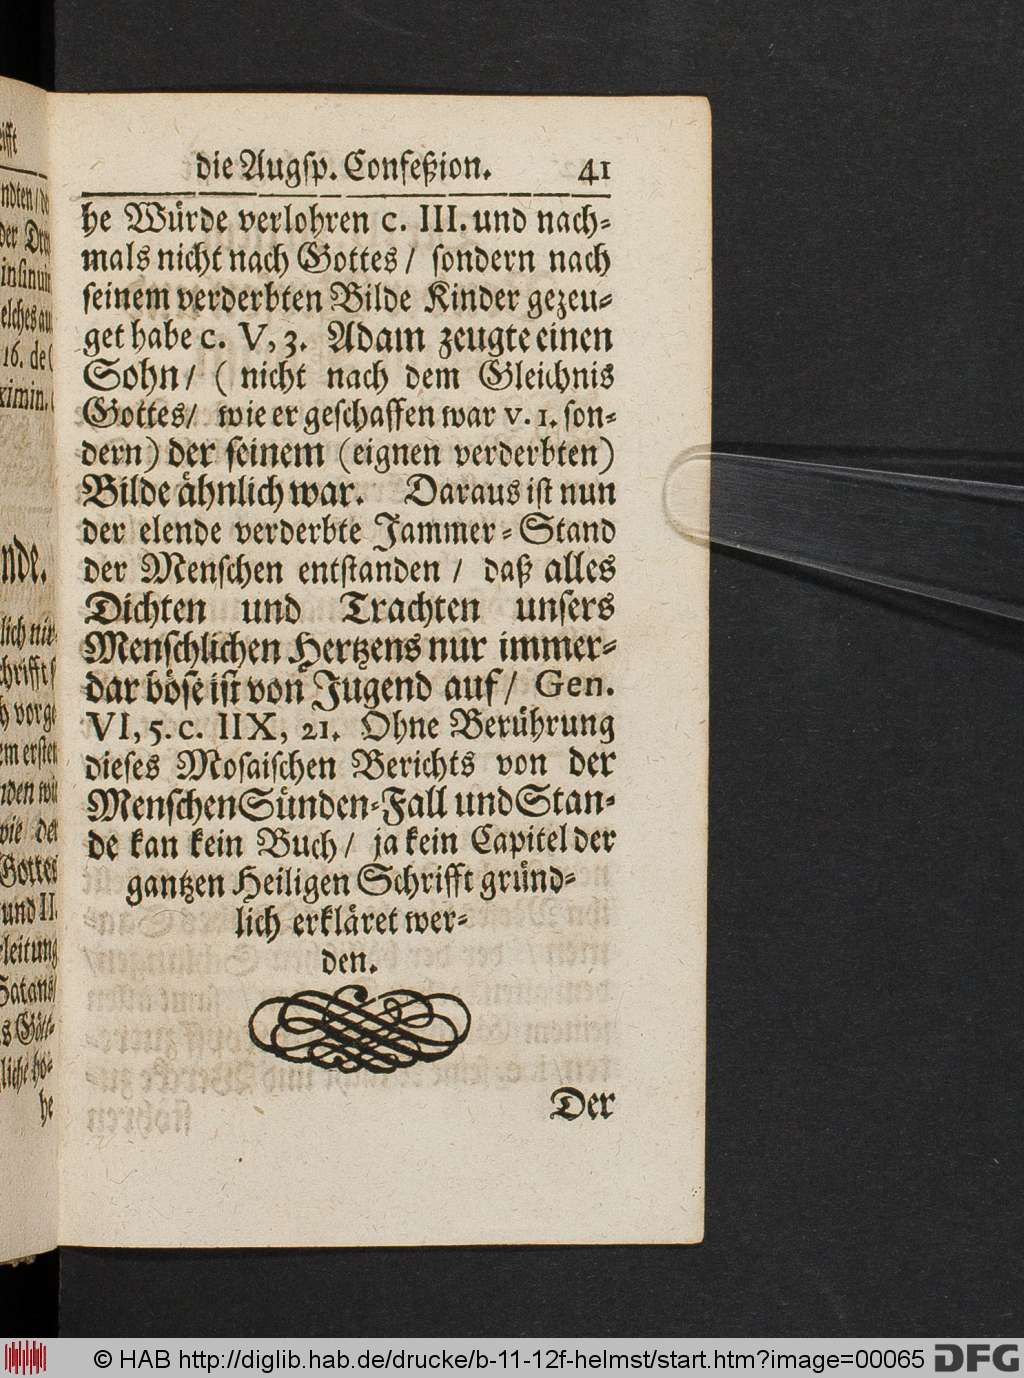 die Augsp. Confeßion. 41
he Würde verlohren c. III. und nach-
mals nicht nach Gottes / sondern nach
seinem verderbten Bilde Kinder gezeu-
get habe c. V, 3. Adam zeugte einen
Sohn / ( nicht nach dem Gleichnis
Gottes / wie er geschaffen war v. 1. son-
dern) der seinem (eignen verderbten)
Bilde ähnlich war. Daraus ist nun
der elende verderbte Jammer-Stand
der Menschen entstanden / daß alles
Dichten und Trachten unsers
Menschlichen Hertzens nur immer-
dar böse ist von Jugend auf / Gen.
VI, 5. c. IIX, 21. Ohne Berührung
dieses Mosaischen Berichts von der
Menschen Sünden-Fall und Stan-
de kan kein Buch / ja kein Capitel der
gantzen Heiligen Schrifft gründ-
lich erkläret wer-
den.
Der
© HAB http://diglib.hab.de/drucke/b-11-12f-helmst/start.htm?image=00065
DFG